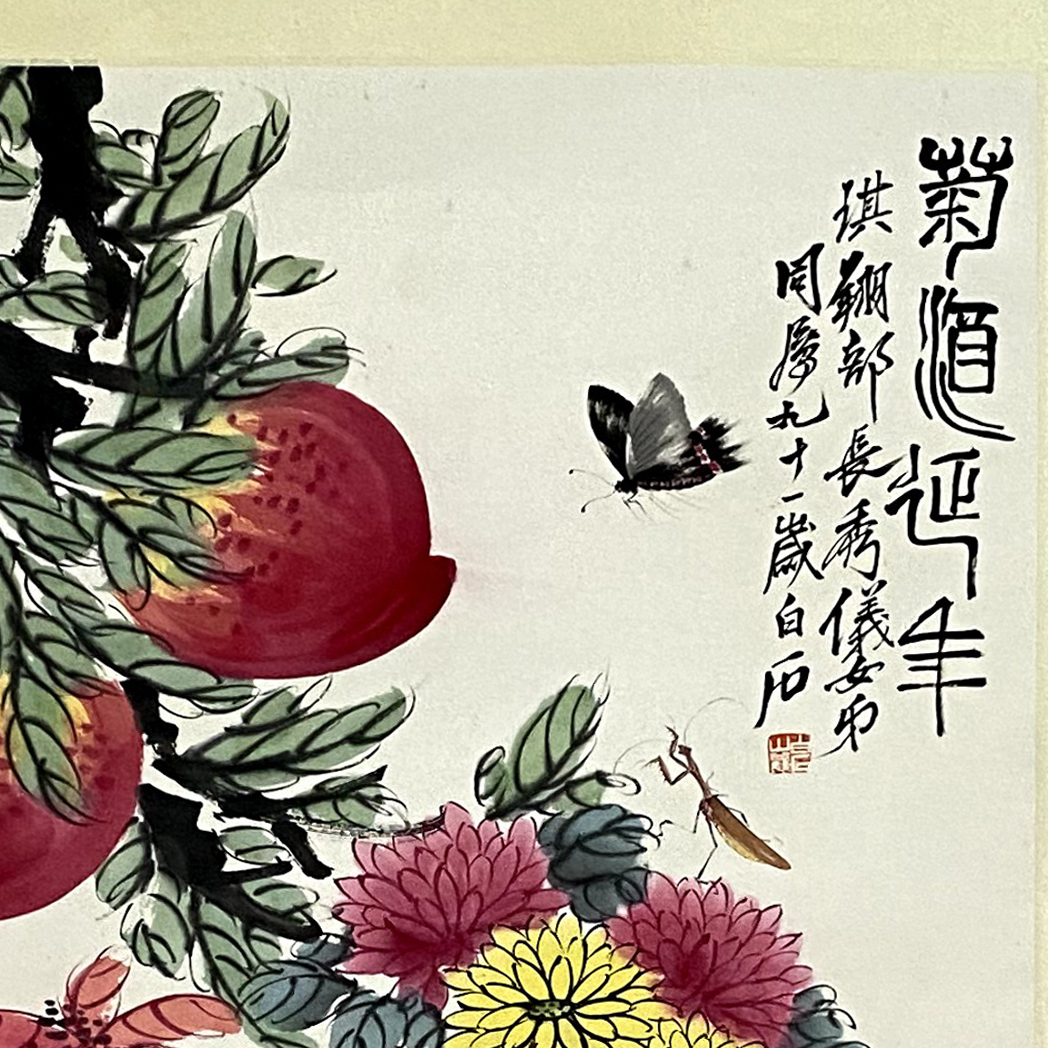 菊酒延年
琪翔部長秀儀女弟
同屬九十一歲白石